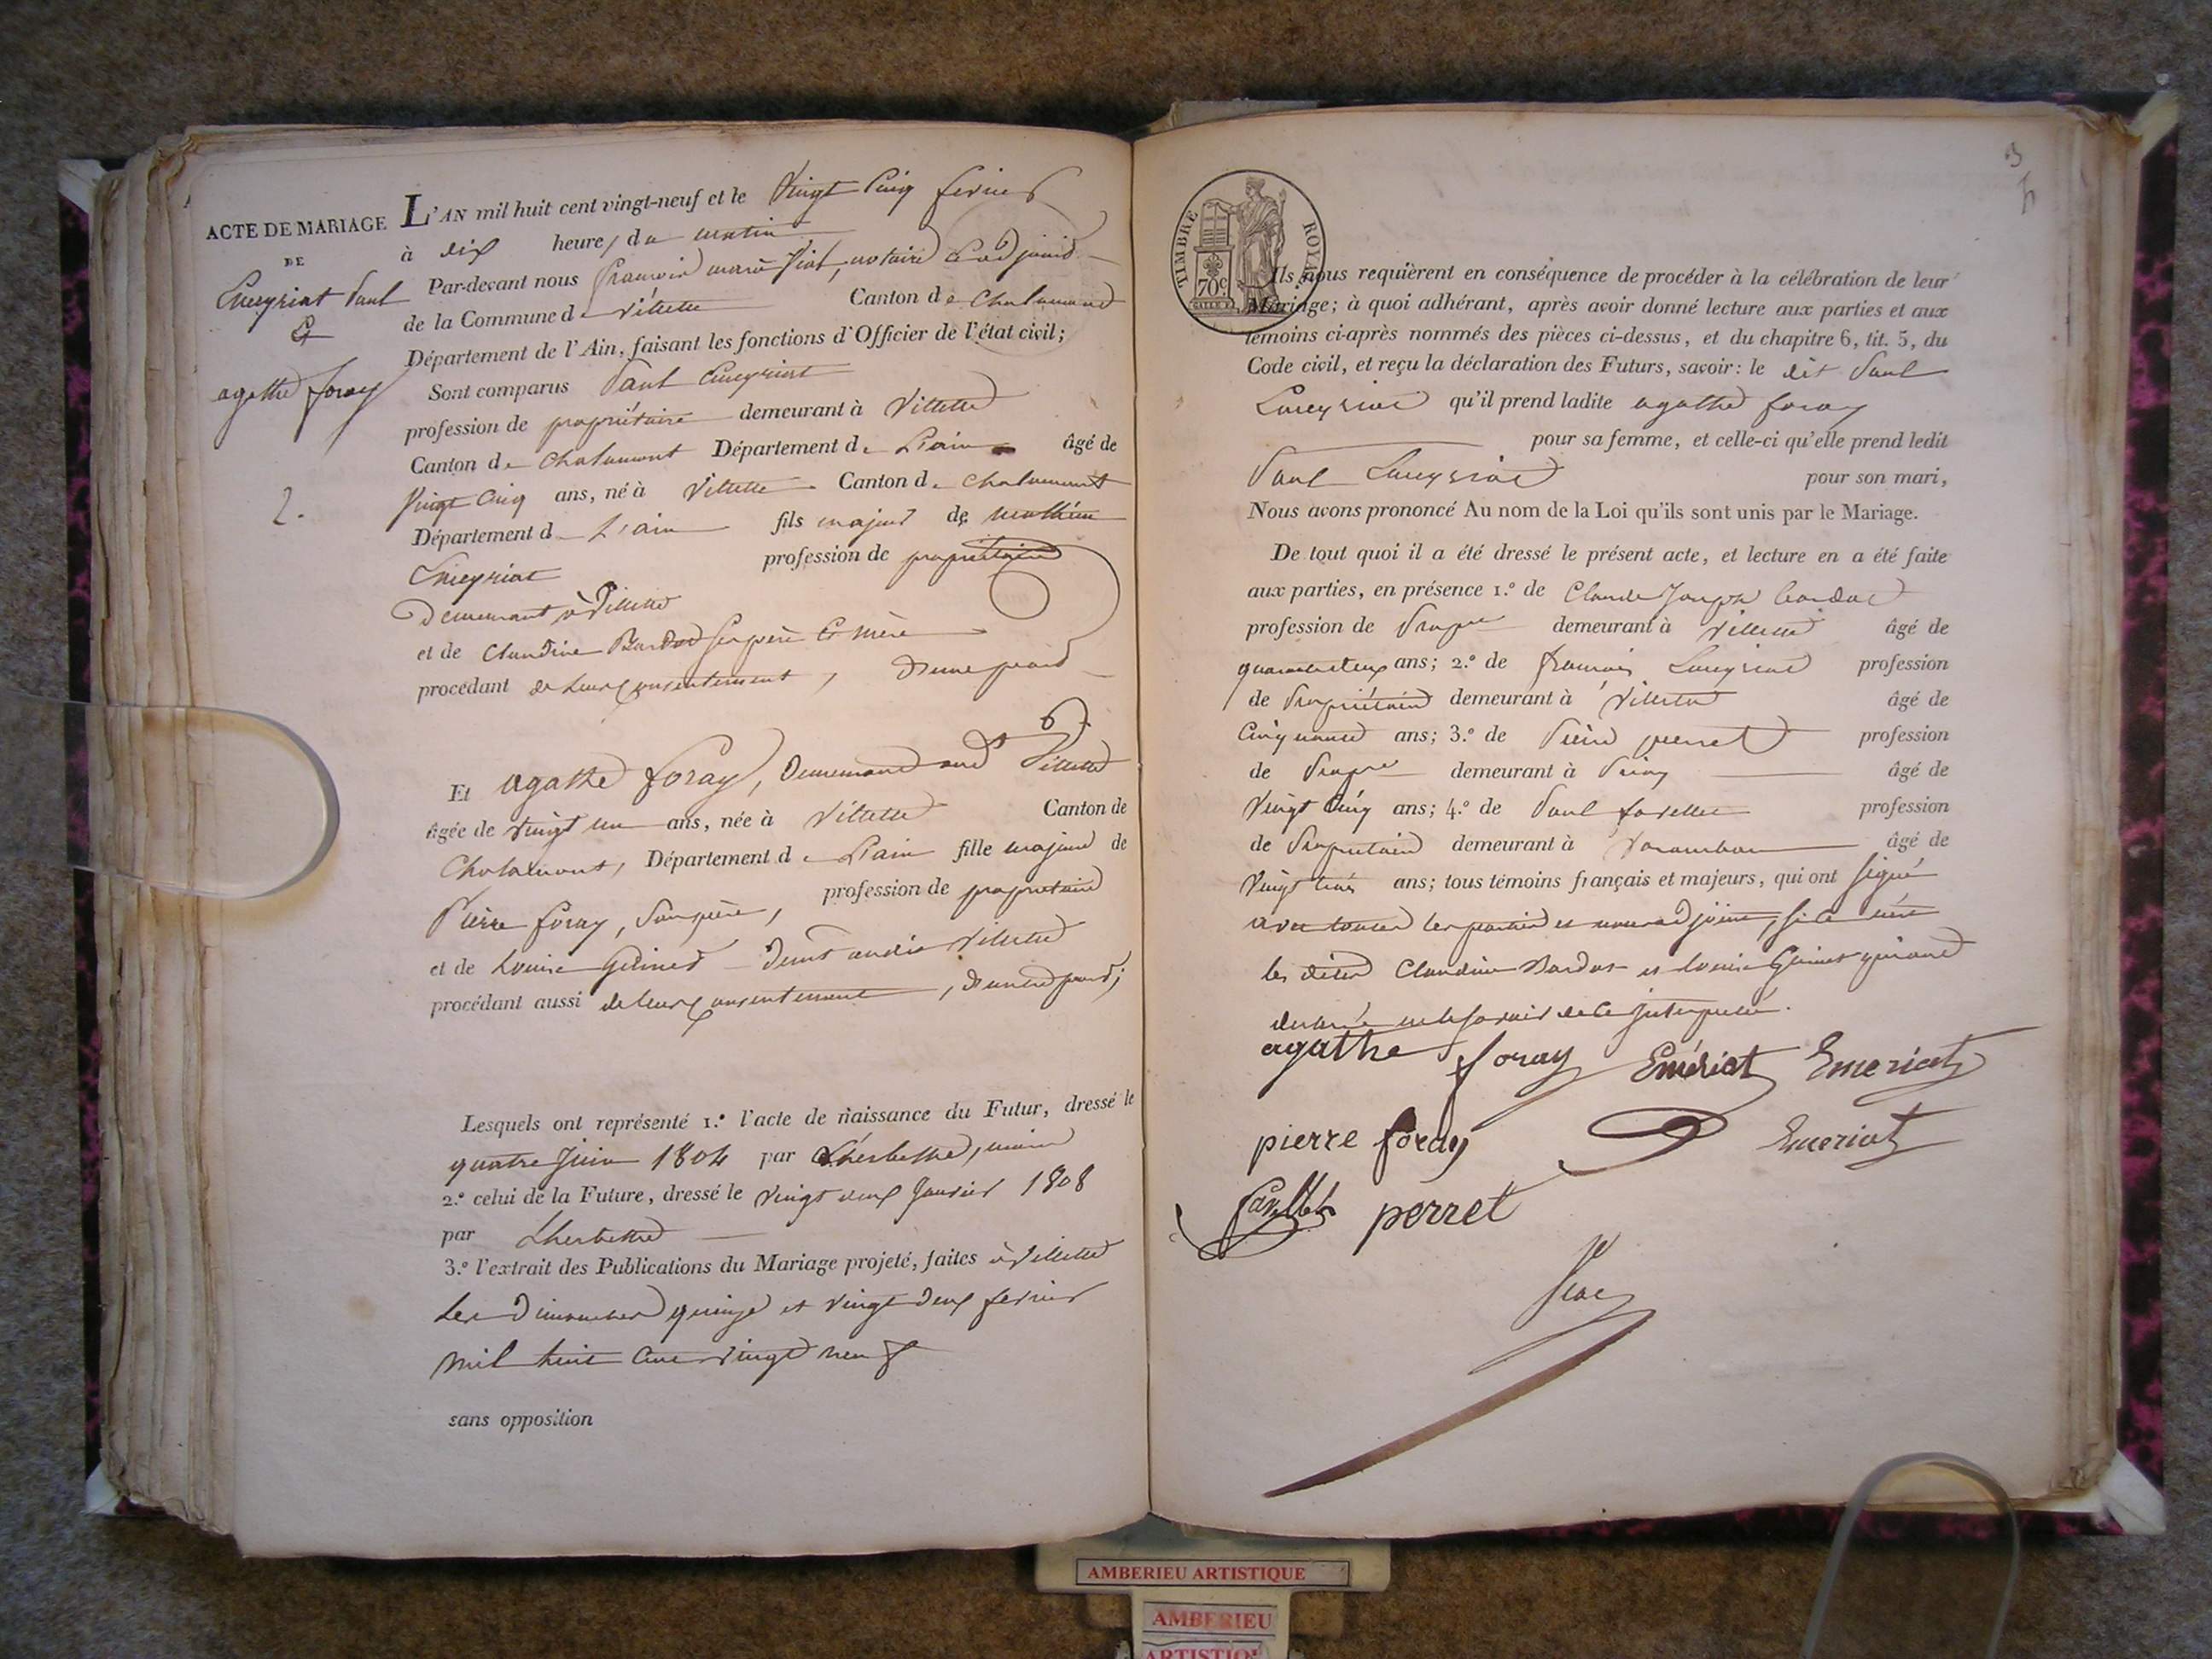 ACTE DE MARIAGE
DE
Emeyriat Paul
&
agathe foray
2.
L'AN mil huit cent vingt-neuf et le Vingt Cinq fevrier
à dix heures du matin
Par-devant nous francois marie Piat, notaire adjoint
de la Commune de Villette Canton de Chalamont
Département de l'Ain, faisant les fonctions d'Officier de l'état civil;
Sont comparus Paul Emeyriat
profession de propriétaire demeurant à Villette
Canton de Chalamont Département de L'ain âgé de
Vingt Cinq ans, né à Villette Canton de Chalamont
Département d L'ain fils majeur de mathieu
Emeyriat profession de propriétaire
Demeurant à Villette
et de Claudine Bardod ses père & mère
procédant de leurs Consentement, D'une part
Et agathe foray, Demeurant aud Villette
âgée de vingt un ans, née à Villette Canton de
Chalamont, Département de L'ain fille majeure de
Pierre foray, Son père, profession de propriétaire
et de Louise Guinet Demt audit Villette
procédant aussi de leurs Consentement, D'autre part;
Lesquels ont représenté 1.º l'acte de naissance du Futur, dressé le
quatre Juin 1804 par Lherbette, maire
2.º celui de la Future, dressé le vingt deux Janvier 1808
par Lherbette
3.º l'extrait des Publications du Mariage projeté, faites à Villette
Les Dimanches quinze et vingt deux fevrier
mil huit Cent vingt neuf
sans opposition
3
TIMBRE ROYAL
70c
Ils nous requièrent en conséquence de procéder à la célébration de leur
Mariage; à quoi adhérant, après avoir donné lecture aux parties et aux
témoins ci-après nommés des pièces ci-dessus, et du chapitre 6, tit. 5, du
Code civil, et reçu la déclaration des Futurs, savoir: le dit Paul
Emeyriat qu'il prend ladite agathe foray
pour sa femme, et celle-ci qu'elle prend ledit
Paul Emeyriat pour son mari,
Nous avons prononcé Au nom de la Loi qu'ils sont unis par le Mariage.
De tout quoi il a été dressé le présent acte, et lecture en a été faite
aux parties, en présence 1.º de Claude Joseph
profession de Propre demeurant à Villette âgé de
quarante deux ans; 2.º de francois Emeyriat profession
de Propriétaire demeurant à Villette âgé de
Cinquante ans; 3.º de Pierre perret profession
de Propre demeurant à Priay âgé de
Vingt Cinq ans; 4.º de Paul profession
de Propriétaire demeurant à Varambon âgé de
Vingt trois ans; tous témoins français et majeurs, qui ont signé
avec toutes les parties et nous adjoint, si ce n'est
les dites Claudine Bardod et Louise Guinet qui ont
declaré ne le savoir de ce Interpellé.
agathe foray Emériat Emeriat
pierre foray Emeriat
perret
Piat
AMBERIEU ARTISTIQUE
AMBERIEU
ARTISTIQUE